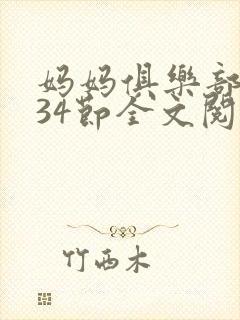 妈妈俱樂部
34节全文閱
竹西木